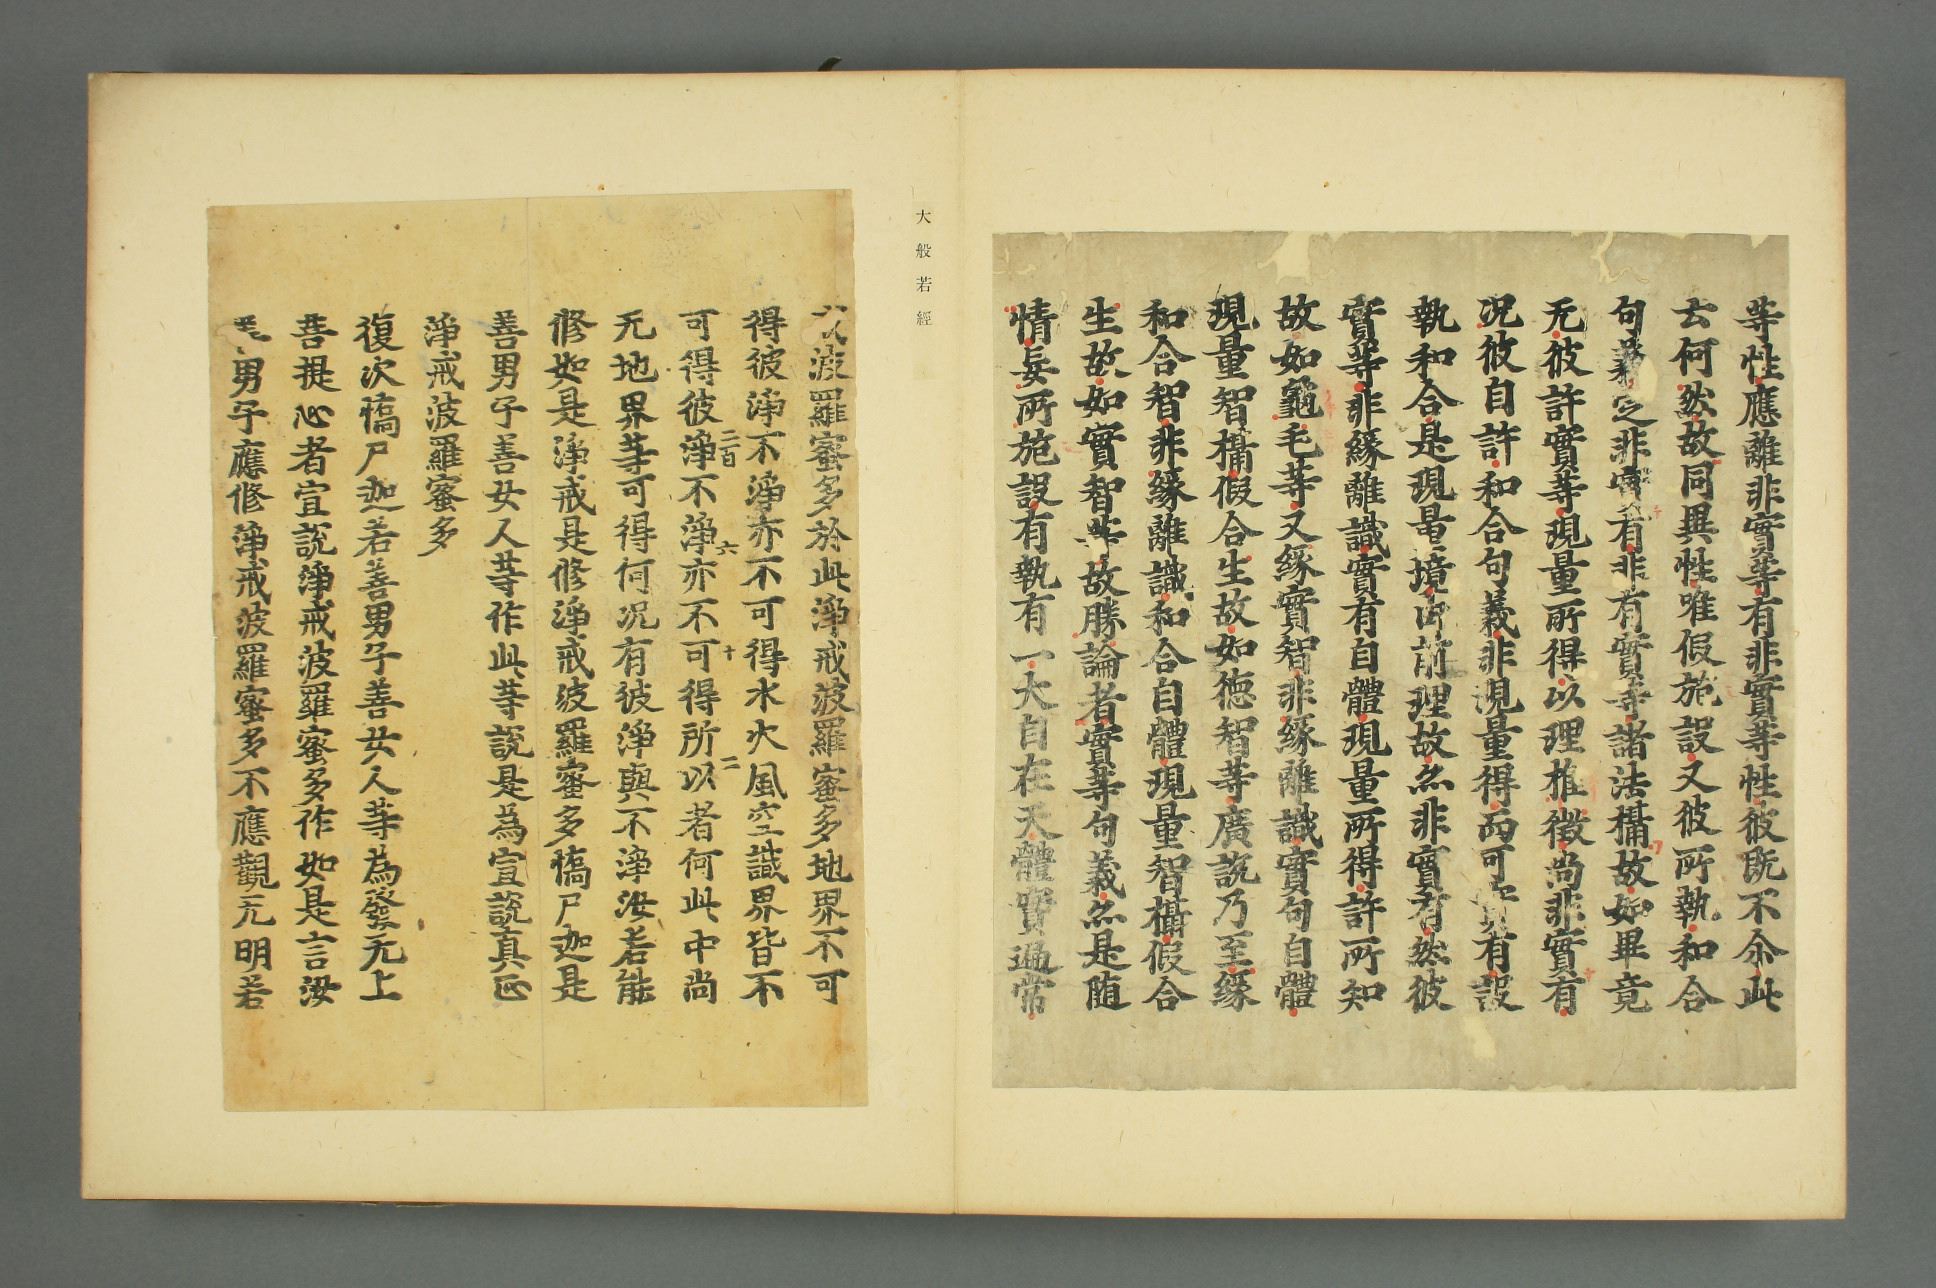 等性應離非實等有非實等性彼既不尒此
云何然故同異性唯假施設又彼所執和合
句義定非實有非有實等諸法攝故如畢竟
无彼許實等現量所得以理推徵尚非實有
況彼自許和合句義非現量得而可實有設
執和合是現量境由前理故亦非實有然彼
實等非緣離識實有自體現量所得許所知
故如龜毛等又緣實智非緣離識實句自體
現量智攝假合生故如德智等廣說乃至緣
和合智非緣離識和合自體現量智攝假合
生故如實智等故勝論者實等句義亦是隨
情妄所施設有執有一大自在天體實遍常
大般若經
波羅蜜多於此淨戒波羅蜜多地界不可
得彼淨不淨亦不可得水火風空識界皆不
可得彼淨不淨亦不可得所以者何此中尚
二百 六 十 二
无地界等可得何況有彼淨與不淨汝若能
修如是淨戒是修淨戒波羅蜜多憍尸迦是
善男子善女人等作此等說是為宣說真正
淨戒波羅蜜多
復次憍尸迦若善男子善女人等為發无上
菩提心者宣說淨戒波羅蜜多作如是言汝
男子應修淨戒波羅蜜多不應觀无明若